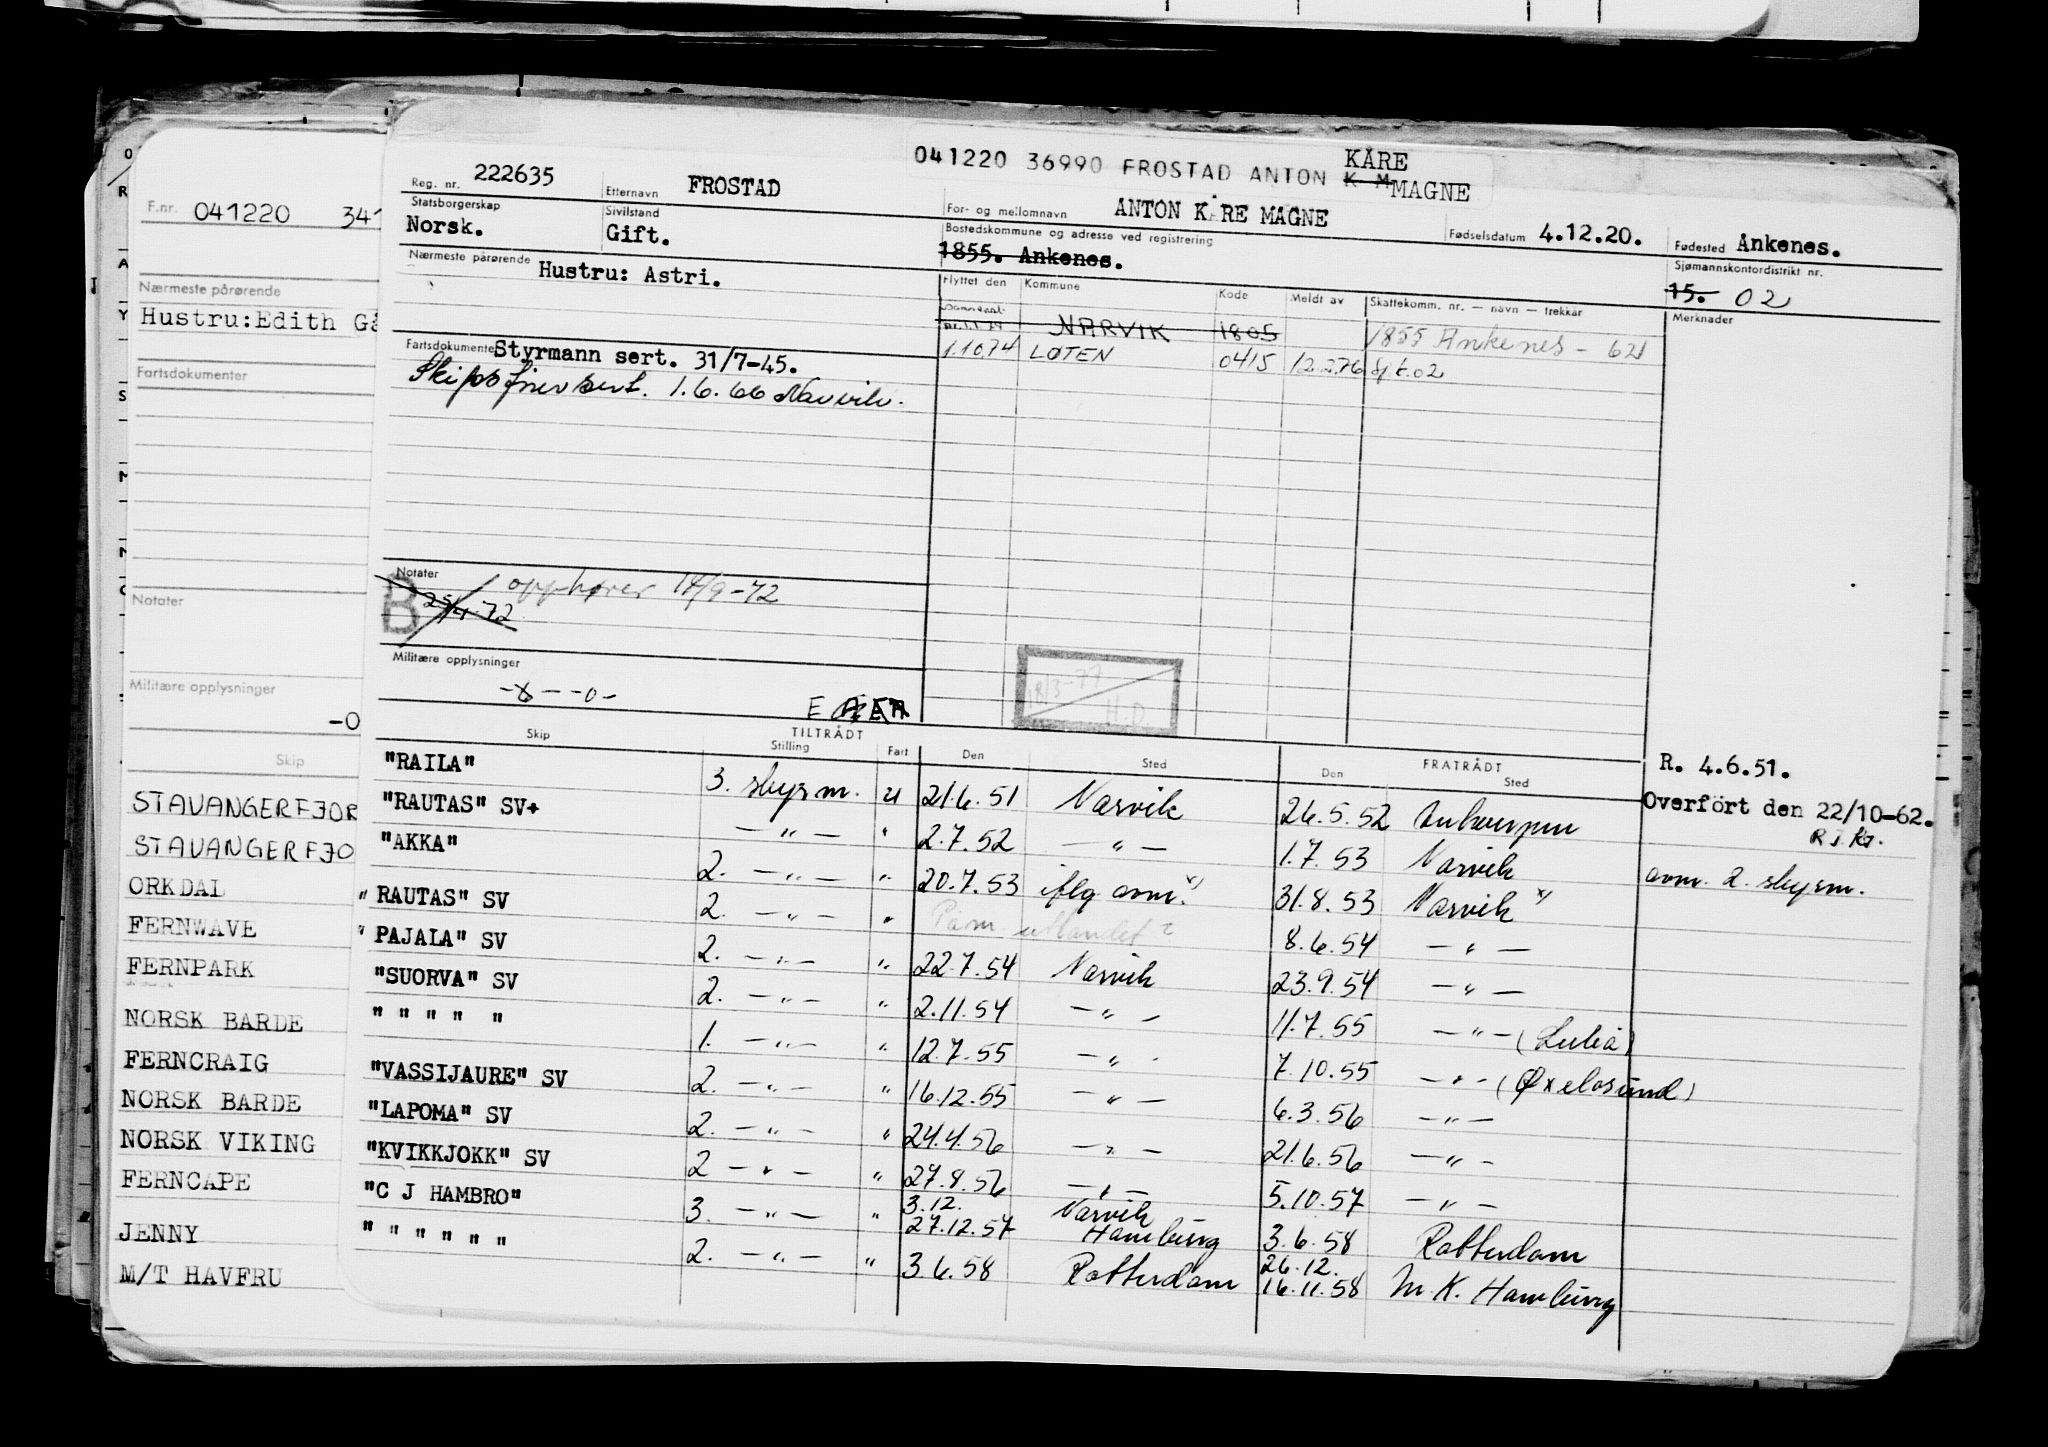 041220 36990 FROSTAD ANTON K M KÅRE
MAGNE
Reg. nr. 222635 Etternavn FROSTAD For- og mellomnavn ANTON KÅRE MAGNE Fødselsdatum 4.12.20. Fødested Ankenes.
Statsborgerskap Norsk. Sivilstand Gift. Bostedskommune og adresse ved registrering 1855. Ankenes. Sjømannskontordistrikt nr. 15. 02
Nærmeste pårørende Hustru: Astri. Flyttet den Kommune Kode Meldt av Skattekomm. nr. — navn — trekkår Merknader
NARVIK 1805 1855 Ankenes - 621
1.10.74 LØTEN 0415 12.2.76 Spk.02
Fartsdokumenter Styrmann sert. 31/7-45.
Skipsførersert. 1.6.66 Narvik.
Notater
B 25/4-72 opphører 14/9-72
Militære opplysninger
-8- -0-
18/3-77 H.D.
E
Skip TILTRÅDT Stilling Fart Den Sted FRATRÅDT Den Sted
"RAILA" 3. styrm. U 21.6.51 Narvik 26.5.52 Antwerpen R. 4.6.51.
"RAUTAS" SV+ — " — " 2.7.52 — " — 1.7.53 Narvik Overfört den 22/10-62.
R.J.Kr.
"AKKA" 2. — " — " 20.7.53 iflg anm. x) 31.8.53 Narvik x) anm. 2. styrm.
"RAUTAS" SV 2. — " — " Påm. utlandet? 8.6.54 — " —
"PAJALA" SV 2. — " — " 22.7.54 Narvik 23.9.54 — " —
"SUORVA" SV 2. — " — " 2.11.54 — " — 11.7.55 — " — (Luleå)
" " " " " 1. — " — " 12.7.55 — " — 7.10.55 — " — (Øxeløsund)
"VASSIJAURE" SV 2. — " — " 16.12.55 — " — 6.3.56 — " —
"LAPOMA" SV 2. — " — " 24.4.56 — " — 21.6.56 — " —
"KVIKKJOKK" SV 2 — " — " 27.8.56 — " — 5.10.57 — " —
"C J HAMBRO" 3. — " — " 3.12. 27.12.57 Narvik Hamburg 3.6.58 Rotterdam
" " " " " " 2. — " — " 3.6.58 Rotterdam 26.12. 16.11.58 M.K. Hamburg
F.nr. 041220 341
Nærmeste pårørende
Hustru:Edith Gå
Fartsdokumenter
Notater
Militære opplysninger
-0
Skip
STAVANGERFJOR
STAVANGERFJO
ORKDAL
FERNWAVE
FERNPARK
NORSK BARDE
FERNCRAIG
NORSK BARDE
NORSK VIKING
FERNCAPE
JENNY
M/T HAVFRU